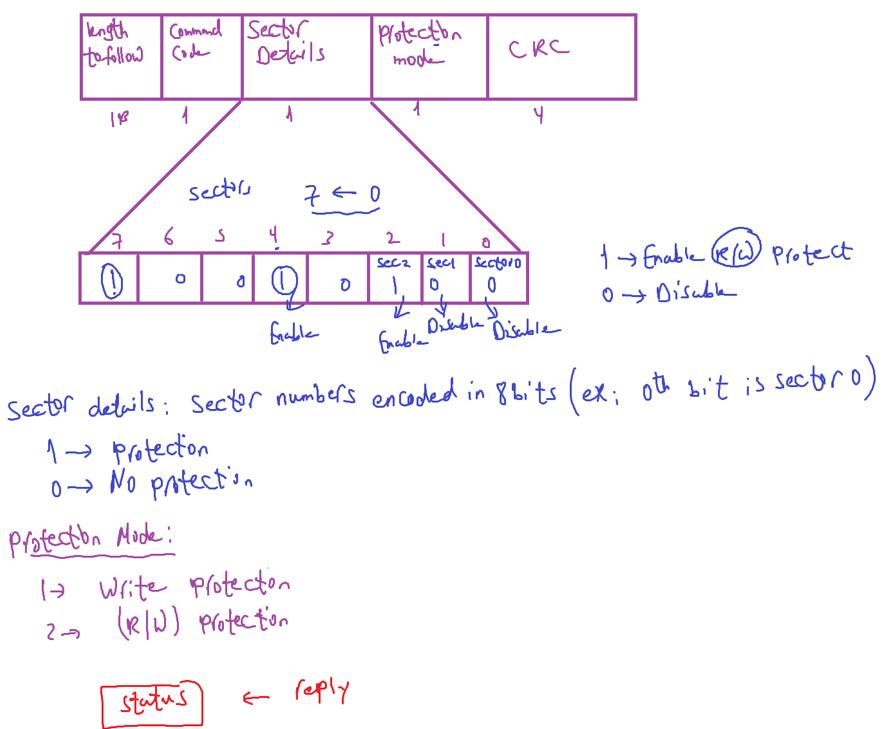 length to follow
Command Code
Sector Details
Protection mode
CRC
1B 1 1 1 4
sectors 7 ← 0
7 6 5 4 3 2 1 0
sec2 sec1 sector0
1 0 0 1 0 1 0 0
Enable Enable Disable Disable
1 → Enable (R/W) Protect
0 → Disable
Sector details: Sector numbers encoded in 8bits (ex; 0th bit is sector 0)
1 → protection
0 → No protection
Protection Mode:
1 → Write protection
2 → (R/W) protection
status ← reply